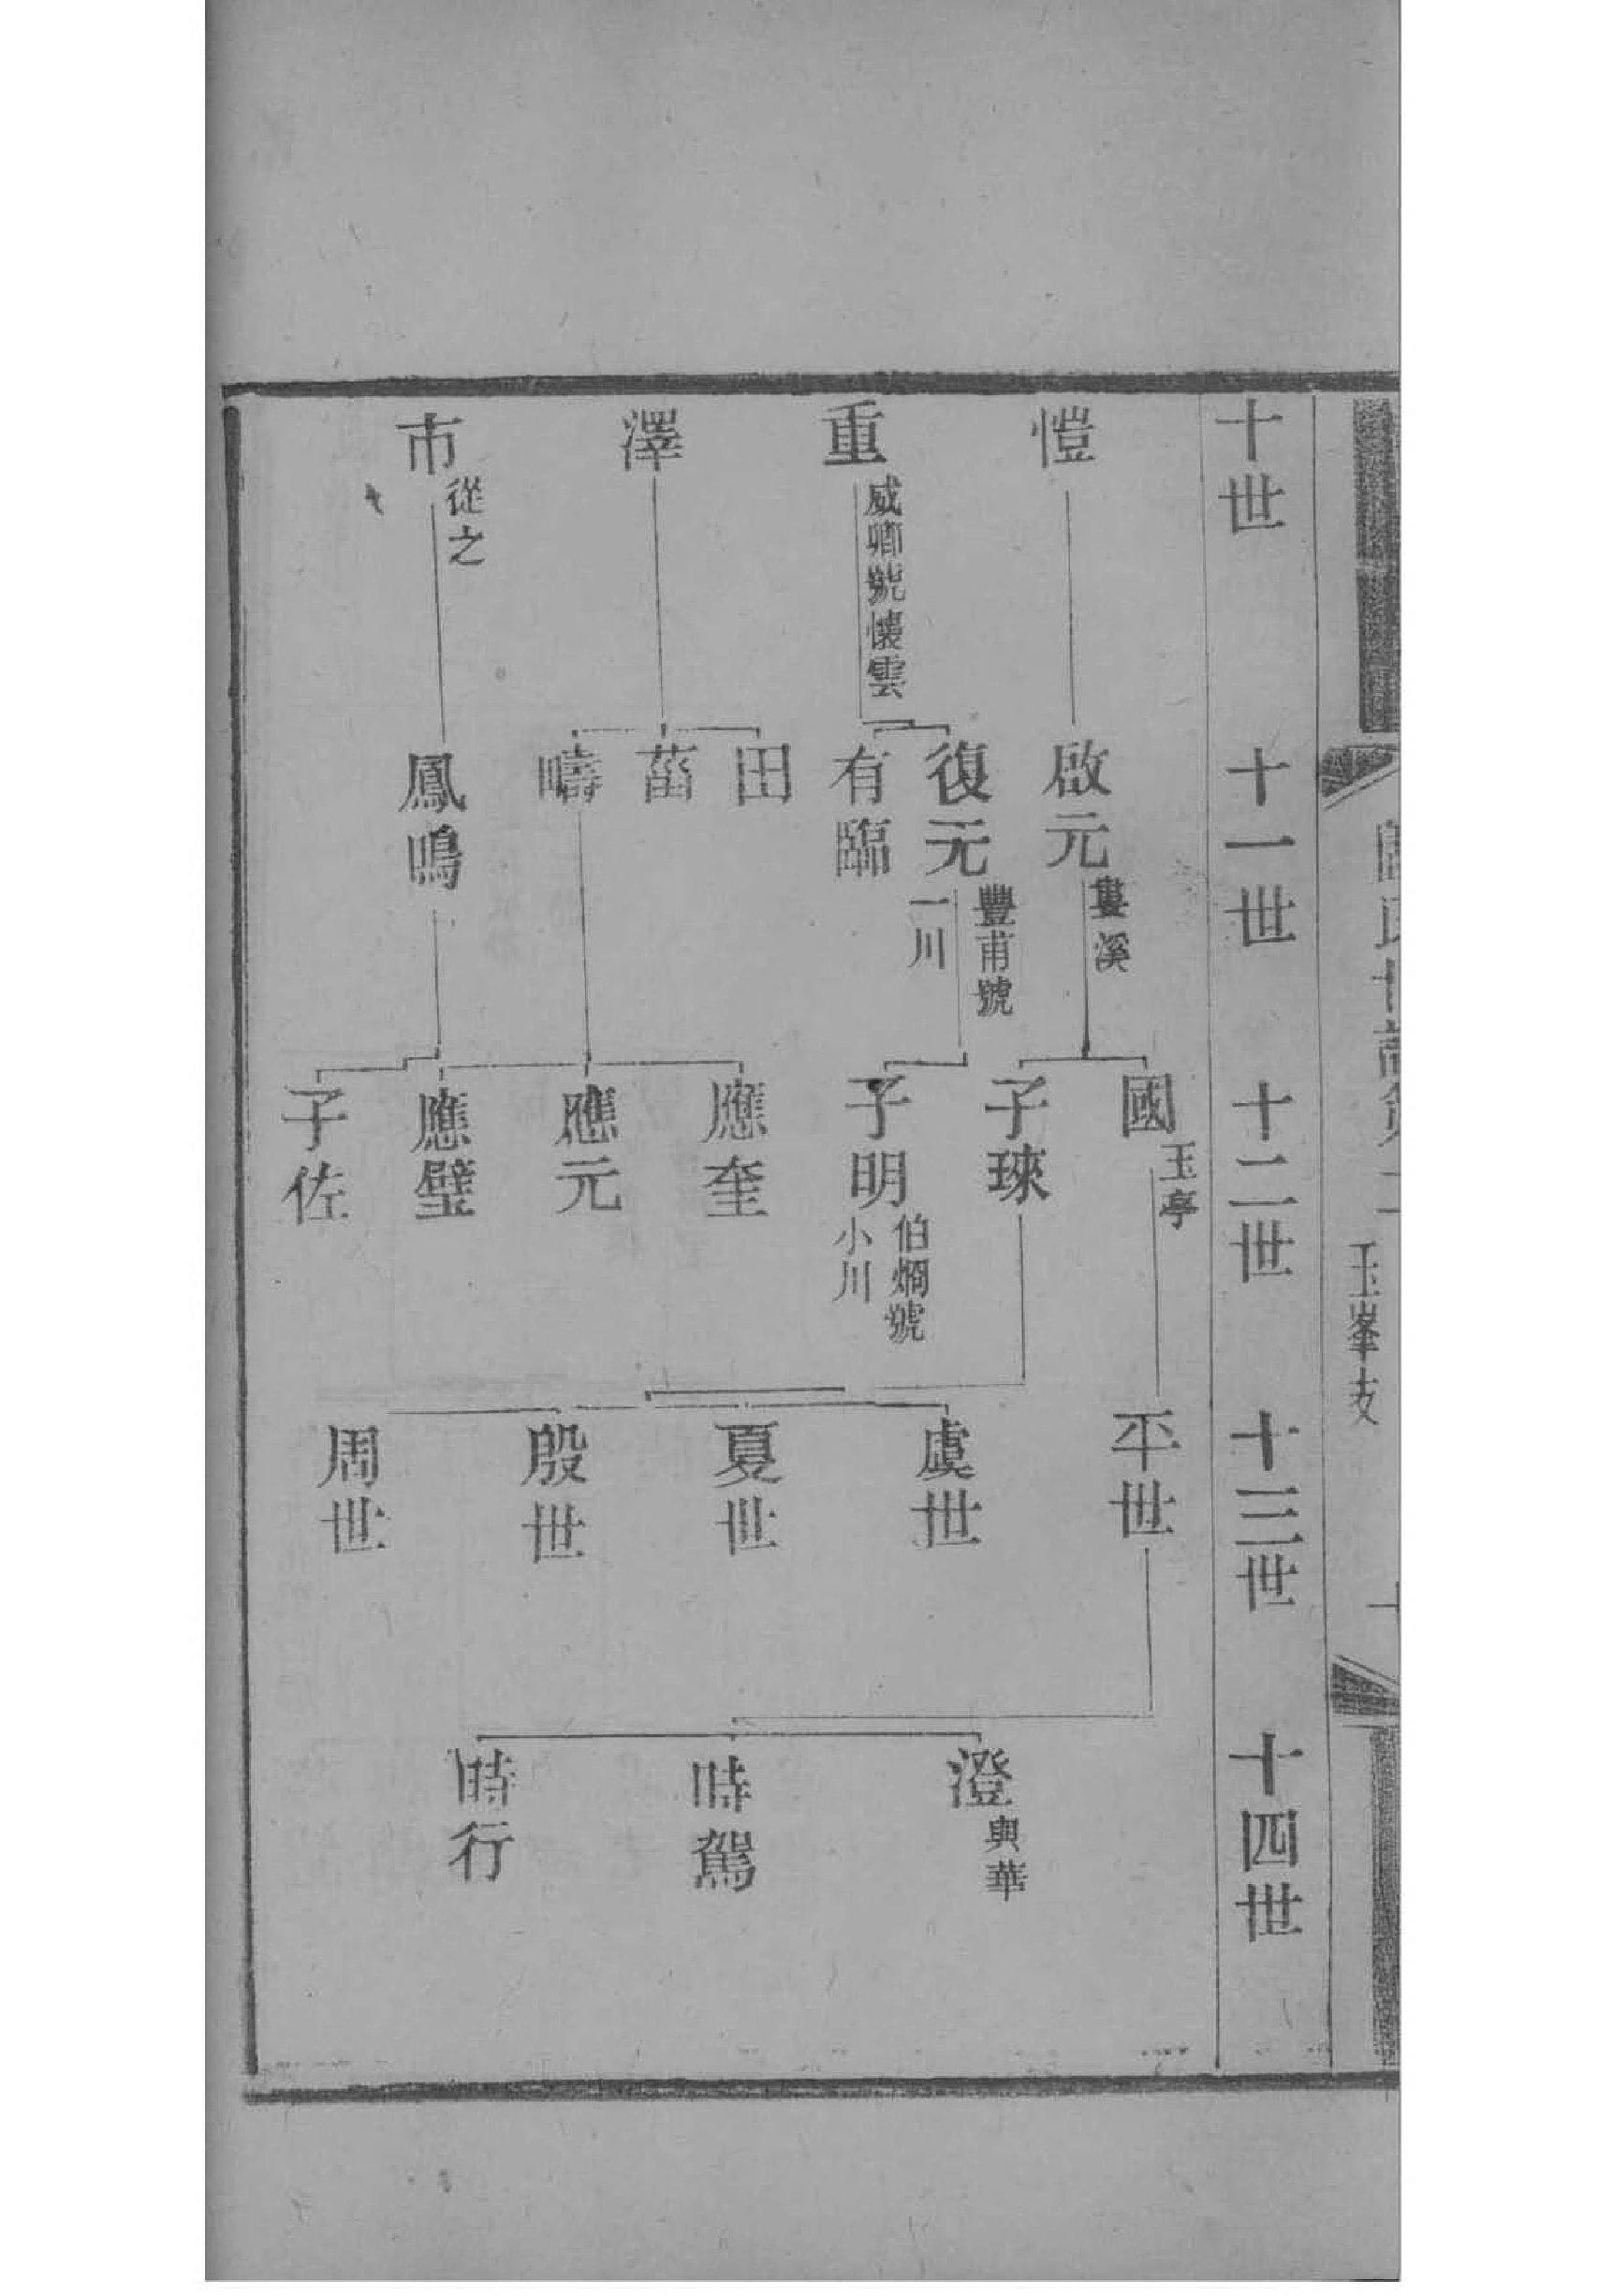 玉峯支
十世
十一世
十二世
十三世
十四世
愷
重
威卿號懷雲
澤
市
從之
啟元
婁溪
復元
豐甫號
一川
有臨
田
菑
疇
鳳鳴
國
玉亭
子琜
子明
伯爛號
小川
應奎
應元
應璧
子佐
平世
虞世
夏世
殷世
周世
澄
與華
時駕
時行